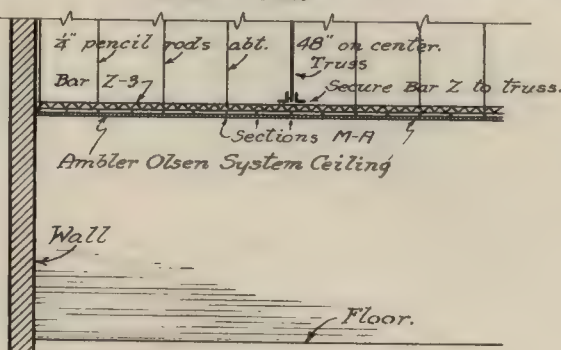 ¼" pencil rods abt. 48" on center.
Truss
Bar Z-3
Secure Bar Z to truss.
Sections M-A
Ambler Olsen System Ceiling
Wall
Floor.